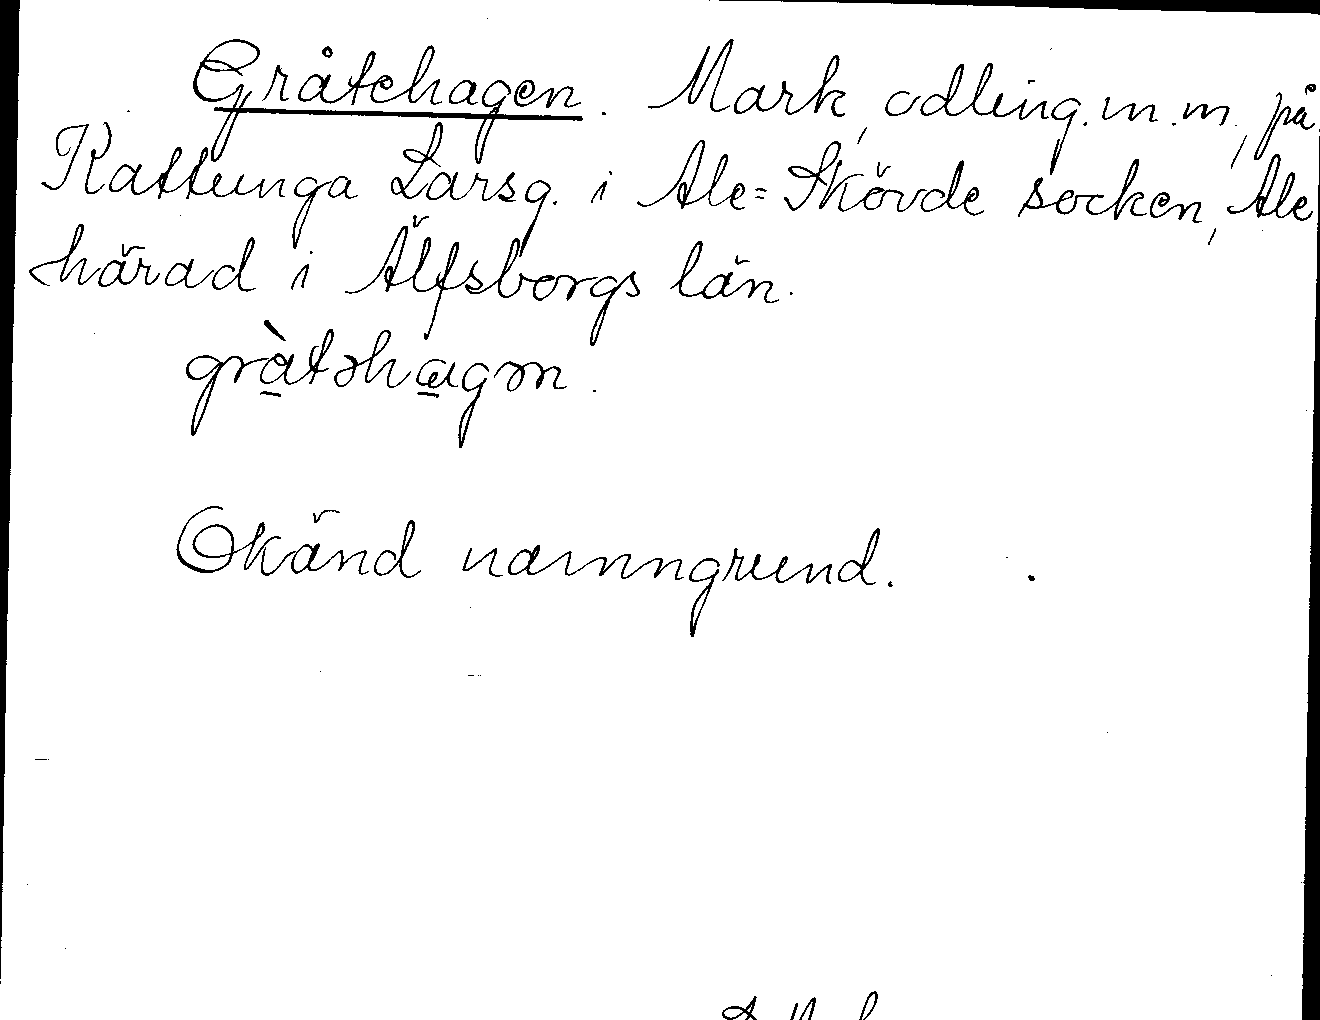 Gråtehagen. Mark, odling.m.m, på
Kattunga Larsg. i Ale=Skövde socken, Ale
härad i Älfsborgs län.
gràtəhagən.
Okänd namngrund.